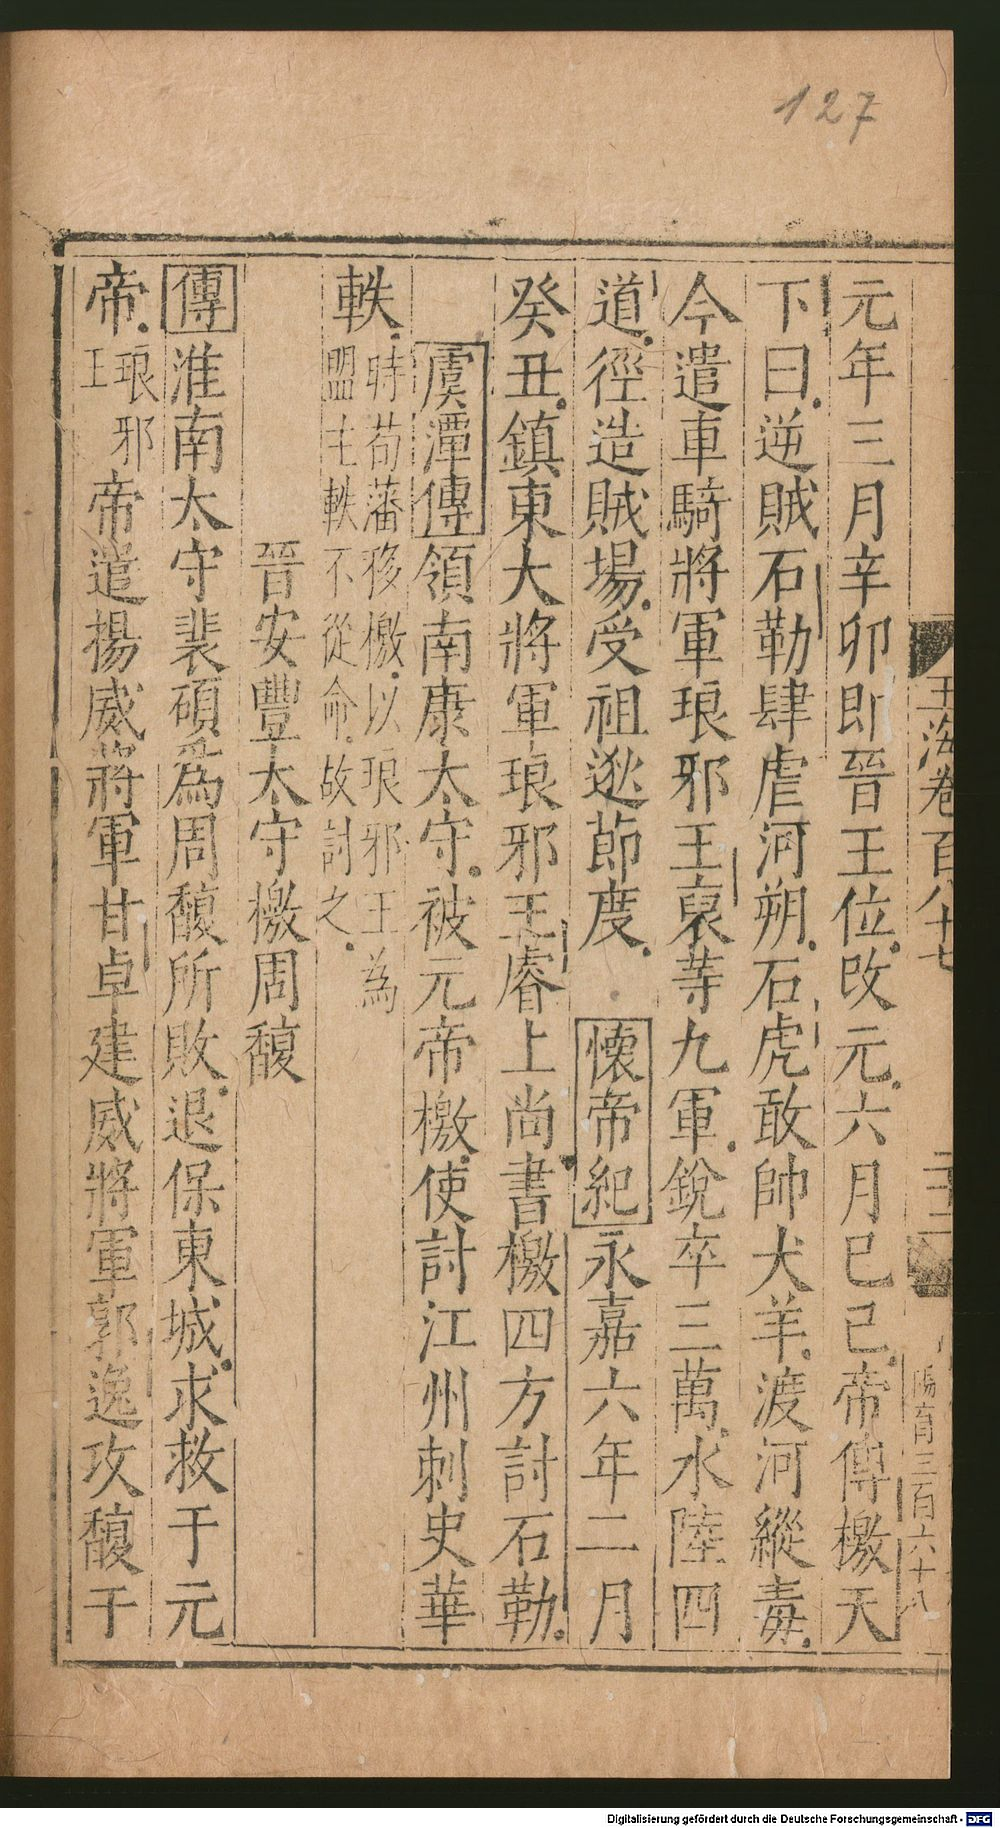 127
玉海卷百八十七
二十二
元年三月辛卯即晉王位改元六月已已帝傳檄天
下曰逆賊石勒肆虐河朔石虎敢帥犬羊渡河縱毒
今遣車騎將軍琅邪王裒等九軍銳卒三萬水陸四
道徑造賊場受祖逖節度 懷帝紀永嘉六年二月
癸丑鎮東大將軍琅邪王睿上尚書檄四方討石勒
虞潭傳領南康太守被元帝檄使討江州刺史華
軼時荀藩移檄以琅邪王為
盟主軼不從命故討之
晉安豐太守檄周馥
傳淮南太守裴碩為周馥所敗退保東城求救于元
帝琅邪
王帝遣揚威將軍甘卓建威將軍郭逸攻馥于
Digitalisierung gefördert durch die Deutsche Forschungsgemeinschaft - DFG